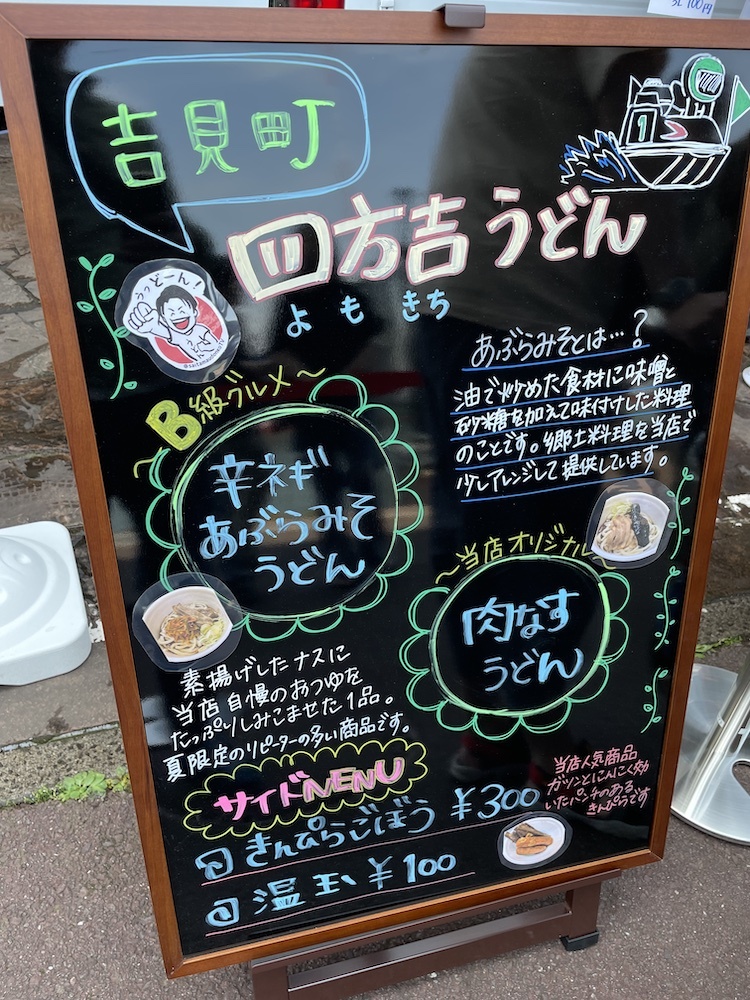 3L 100円
吉見町
1
四方吉うどん
よもきち
うっどーん!
うどん
B級グルメ〜
辛ネギ
あぶらみそ
うどん
あぶらみそとは…?
油で炒めた食材に味噌と
砂糖を加えて味付けした料理
のことです。郷土料理を当店で
少しアレンジして提供しています。
〜当店オリジナル〜
肉なす
うどん
素揚げしたナスに
当店自慢のおつゆを
たっぷりしみこませた1品。
夏限定のリピーターの多い商品です。
サイドMENU
きんぴらごぼう ¥300
当店人気商品
ガツンとにんにく効
いたパンチのある
きんぴらです
温玉 ¥100